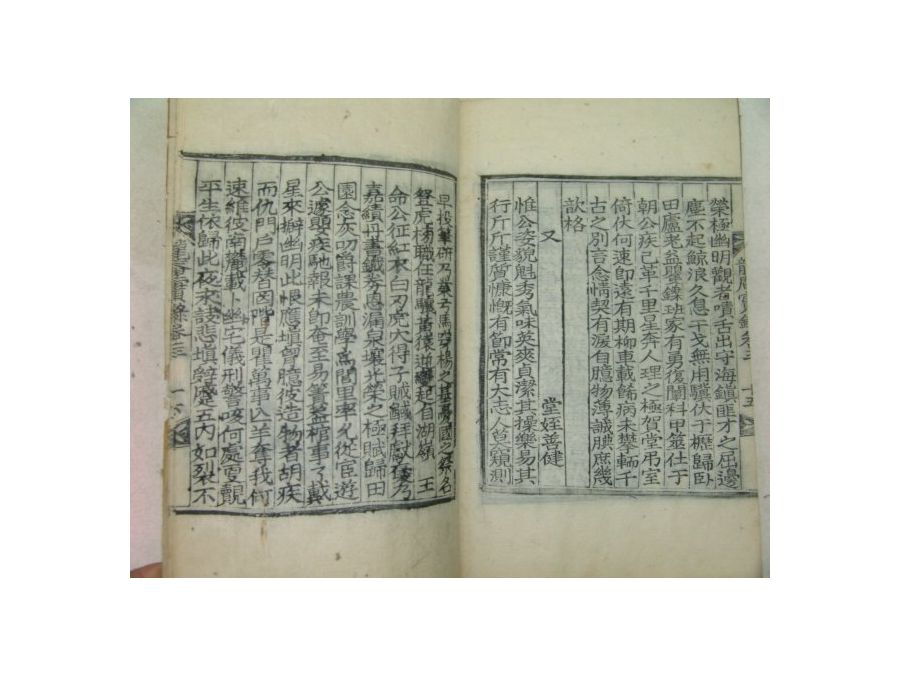 榮極幽明觀者嘖舌出守海鎭匪才之屈邊
塵不起鯨浪久息干戈無用驥伏于櫪歸臥
田廬老益矍鑠班家有勇復闡科甲筮仕于
朝公疾已革千里星奔人理之極賀堂弔室
倚伏何速卽遠有期柳車載餙病未攀輀千
古之別言念情契有淚自臆物薄誠腆庶幾
歆格
又 堂姪善健
惟公姿貌魁秀氣味英爽貞潔其操樂易其
行斤斤謹質慷慨有節常有大志人莫窺測
早投筆硏乃業弓馬穿楊之藝憂國之
登虎榜職任龍驤黃猿逆變起自湖嶺 王
命公征紅衣白刃虎穴得子賊馘拜獻
嘉績丹書鐵券恩漏泉壤光榮之極賦歸田
園念灰叨爵課農訓學爲閭里率允從臣遊
公遽嬰疾馳報未卽奄至易簀蓋棺事了戴
星來擗幽明此恨應塡曾臆彼造物者胡疾
而仇門戶零替因階是咀萬事入羊奪我何
速維彼南麓載卜幽宅儀刑警咳何處更覿
平生依歸此夜永訣悲塡辭蹙五內如裂不